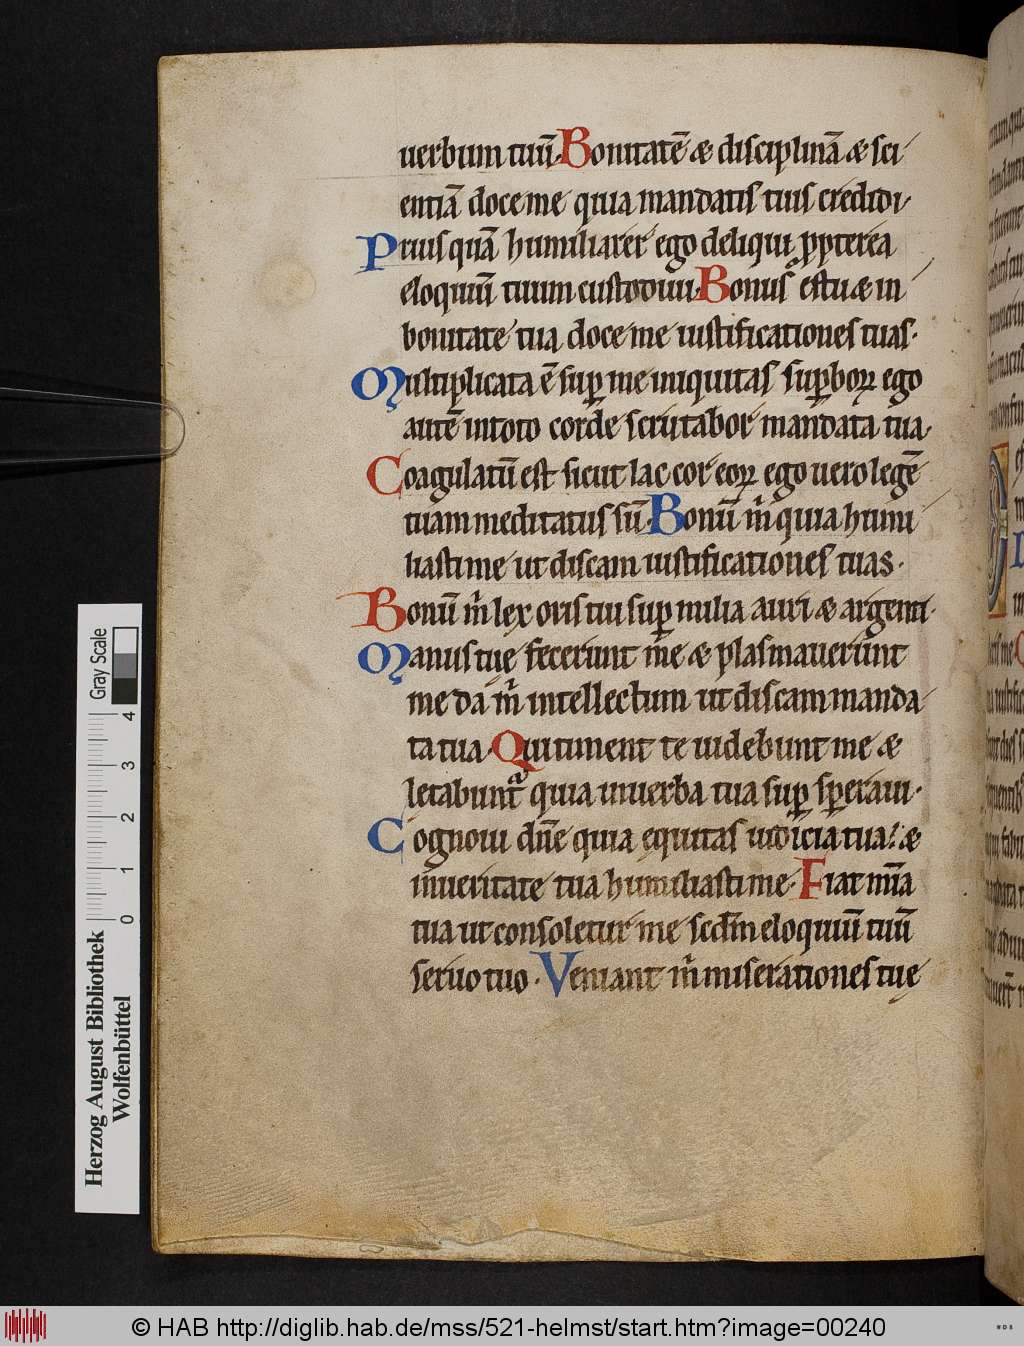 uerbum tuū. Bonitatē & disciplinā & sci
entiā doce me quia mandatis tuis credidi.
Priusquā humiliarer ego deliqui ꝓpterea
eloquiū tuum custodiui. Bonus es tu & in
bonitate tua doce me iustificationes tuas.
Multiplicata ē suꝑ me iniquitas suꝑboꝝ ego
autē in toto corde scrutabor mandata tua.
Coagulatū est sicut lac cor eoꝝ ego uero legē
tuam meditatus sū. Bonū m̄ quia humi
liasti me ut discam iustificationes tuas.
Bonū m̄ lex oris tui suꝑ milia auri & argenti.
Manus tuę fecerunt me & plasmauerunt
me da m̄ intellectum ut discam manda
ta tua. Qui timent te uidebunt me &
letabuntᷓ quia in uerba tua suꝑ sꝑeraui.
Cognoui dn̄e quia equitas iudicia tua: &
in ueritate tua humiliasti me. Fiat mīa
tua ut consoletur me scdm̄ eloquiū tuū
seruo tuo. Veniant m̄ miserationes tuę
Gray Scale
4
3
2
1
0
Herzog August Bibliothek
Wolfenbüttel
© HAB http://diglib.hab.de/mss/521-helmst/start.htm?image=00240